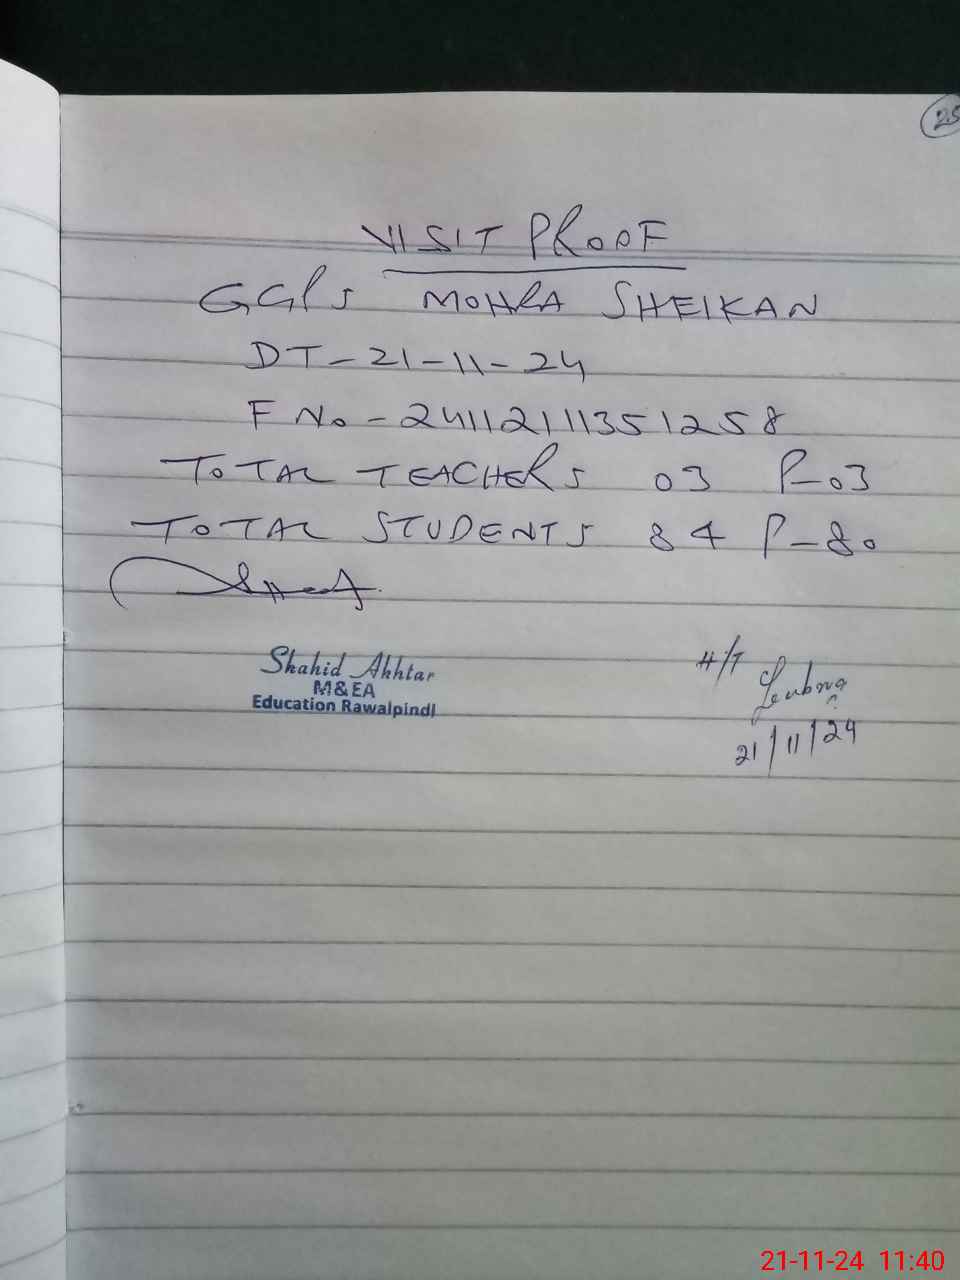 25
VISIT PROOF
GGPS MOHRA SHEIKAN
DT-21-11-24
F No-24112111351258
TOTAL TEACHERS 03 P-03
TOTAL STUDENTS 84 P-80
Shahid Akhtar
M&EA
Education Rawalpindi
H/T
21/11/24
21-11-24 11:40